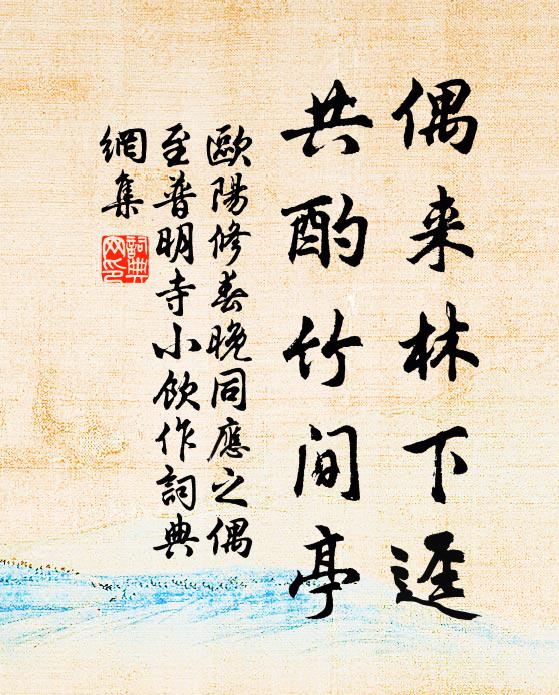 偶来林下逕
共酌竹間亭
歐陽修春晚同應之偶
至普明寺小飲作詞典
網集
詞典
网印